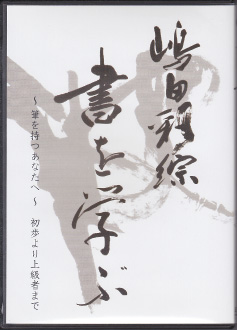 嶋田彩綜
書を学ぶ
～筆を持つあなたへ～ 初歩より上級者まで